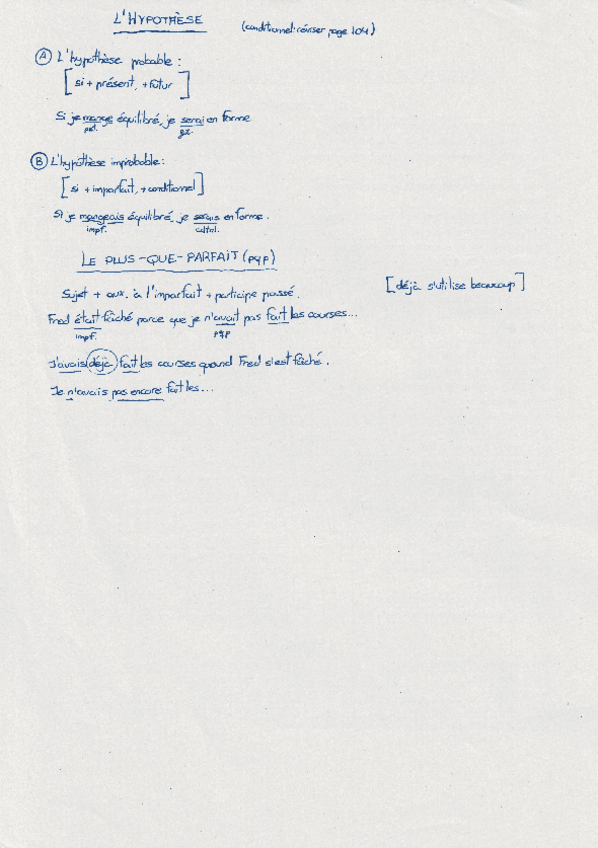 L'HYPOTHÈSE (conditionnel: réviser page 104)
Ⓐ L'hypothèse probable :
[si + présent, + futur]
Si je mange équilibré, je serai en forme
pst. gt.
Ⓑ L'hypothèse improbable :
[si + imparfait, + conditionnel]
Si je mangeais équilibré, je serais en forme.
impf. cdtnl.
LE PLUS-QUE-PARFAIT (pqp)
Sujet + aux. à l'imparfait + participe passé. [déjà s'utilise beaucoup]
Fred était fâché parce que je n'avait pas fait les courses...
impf. pqp
J'avais déjà fait les courses quand Fred s'est fâché.
Je n'avais pas encore fait les...